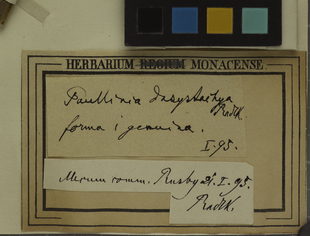 HERBARIUM REGIUM MONACENSE
Paullinia dasystachya
Radlk.
forma 1 genuina.
I.95.
Merum comm. Rusby d. I. 95.
Radlk.